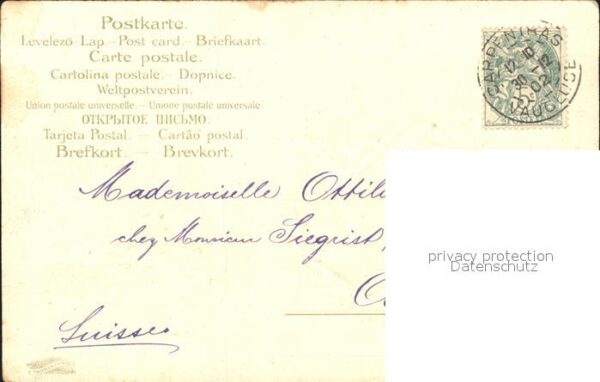 Postkarte.
Levelező-Lap. - Post card. - Briefkaart.
Carte postale.
Cartolina postale. - Dopnice.
Weltpostverein.
Union postale universelle. - Unione postale universale.
ОТКРЫТОЕ ПИСЬМО.
Tarjeta Postal. - Cartão postal.
Brefkort. - Brevkort.
CARPENTRAS
VAUCLUSE
Mademoiselle Ottil
chez Monsieur Siegrist,
Suisse
privacy protection
Datenschutz